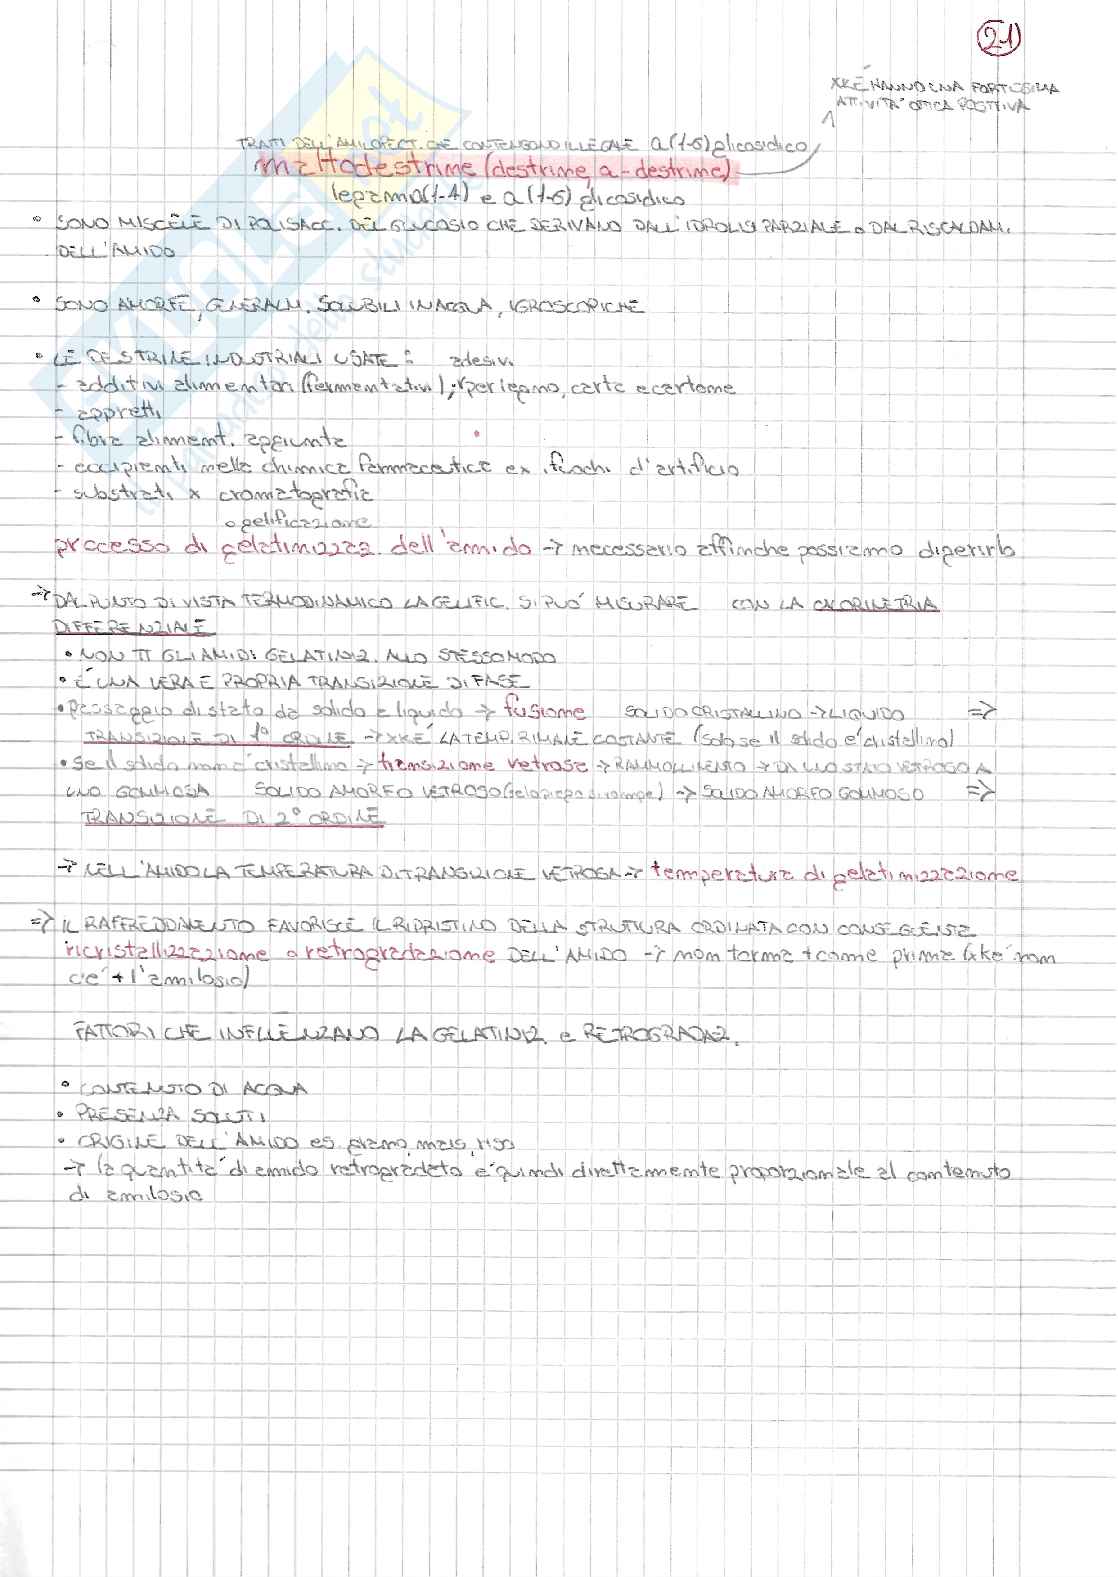 21
XKÈ HANNO UNA FORTISSIMA
ATTIVITÀ OTTICA POSITIVA
TRATTI DELL'AMILOPECT. CHE CONTENGONO IL LEGAME a(1-6) glicosidico
maltodestrine (destrine, a-destrine)
legami a(1-4) e a(1-6) glicosidico
• SONO MISCELE DI POLISACC. DEL GLUCOSIO CHE DERIVANO DALL'IDROLISI PARZIALE o DAL RISCALDAM.
DELL'AMIDO
• SONO AMORFE, GENERALM. SOLUBILI IN ACQUA, IGROSCOPICHE
• LE DESTRINE INDUSTRIALI USATE: adesivi
- additivi alimentari (fermentativi); per legno, carta e cartone
- appretti
- fibra aliment. aggiunta
- eccipienti nella chimica farmaceutica ex. fuochi d'artificio
- substrati x cromatografia
o gelificazione
processo di gelatinizzaz. dell'amido → necessario affinche possiamo digerirlo
→ DAL PUNTO DI VISTA TERMODINAMICO LA GELIFIC. SI PUO' MISURARE CON LA CALORIMETRIA
DIFFERENZIALE
• NON TT GLI AMIDI GELATINIZ. ALLO STESSO MODO
• È UNA VERA E PROPRIA TRANSIZIONE DI FASE
• passaggio di stato da solido a liquido → fusione SOLIDO CRISTALLINO → LIQUIDO ⇒
TRANSIZIONE DI 1° ORDINE → XKÉ LA TEMP. RIMANE COSTANTE (solo se il solido é cristallino)
• se il solido non é cristallino → transizione vetrosa → RAMMOLLIMENTO → DA UNO STATO VETROSO A
UNO GOMMOSA SOLIDO AMORFO VETROSO → SOLIDO AMORFO GOMMOSO ⇒
TRANSIZIONE DI 2° ORDINE
→ NELL'AMIDO LA TEMPERATURA DI TRANSIZIONE VETROSA → temperatura di gelatinizzazione
⇒ IL RAFFREDDAMENTO FAVORISCE IL RIPRISTINO DELLA STRUTTURA ORDINATA CON CONSEGUENTE
ricristallizzazione o retrogradazione DELL'AMIDO → non torna + come prima (xké non
c'é + l'amilosio)
FATTORI CHE INFLUENZANO LA GELATINIZ. e RETROGRADAZ.
• CONTENUTO DI ACQUA
• PRESENZA SOLUTI
• ORIGINE DELL'AMIDO es. grano, mais, riso
→ la quantità di amido retrogradato é quindi direttamente proporzionale al contenuto
di amilosio